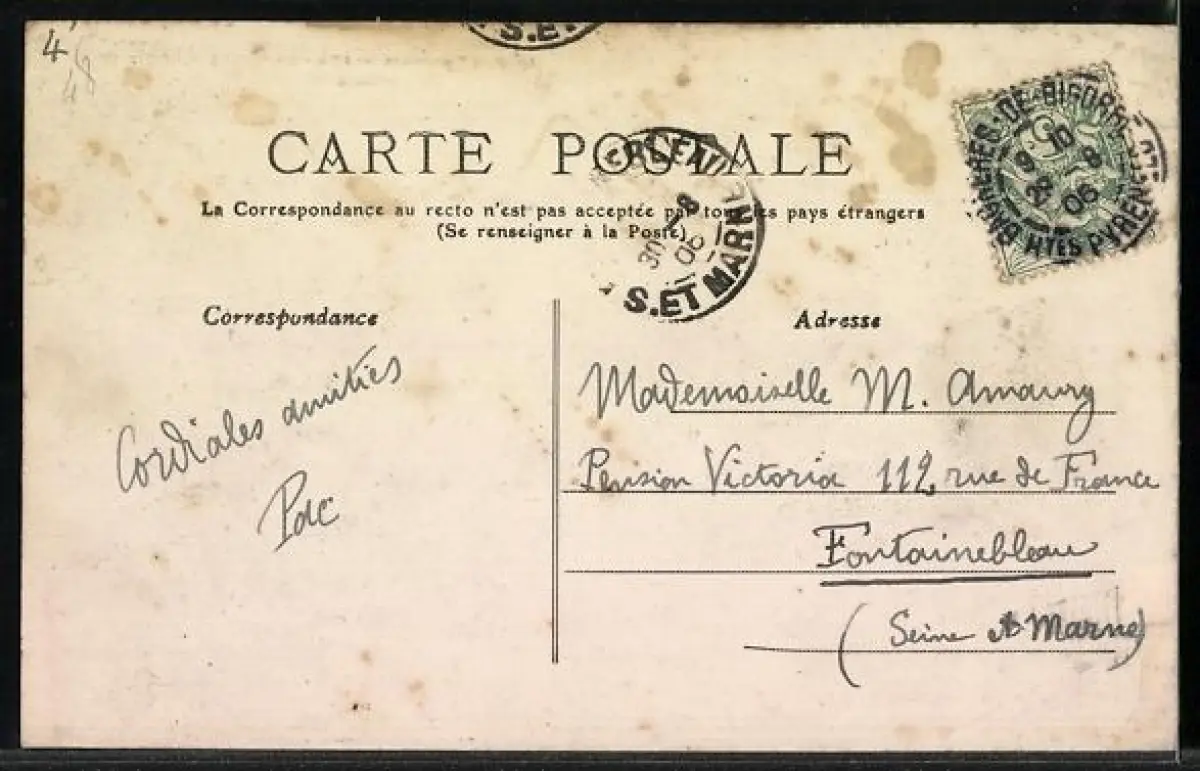 4
48
S.ET
CARTE POSTALE
La Correspondance au recto n'est pas acceptée par tous les pays étrangers
(Se renseigner à la Poste)
BAGNERES-DE-BIGORRE
9 10
28 8
06
HTES PYRENEES
30 8
06
S.ET MARNE
Correspondance
Cordiales amitiés
Adresse
Mademoiselle M. Amaury
Pension Victoria 112 rue de France
Fontainebleau
(Seine et Marne)